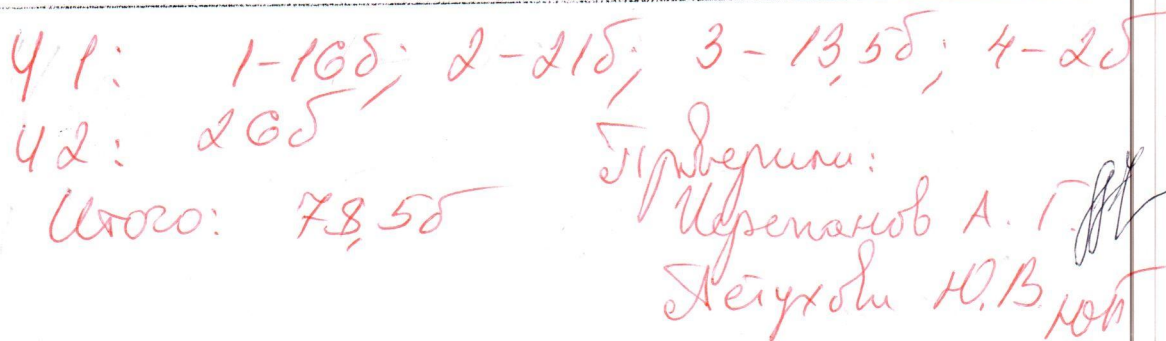 Ч1: 1-16б; 2-21б; 3-13,5б; 4-2б
Ч2: 26б
Итого: 78,5б
Проверили:
Черепанов А. Г.
Петухова Ю.В.